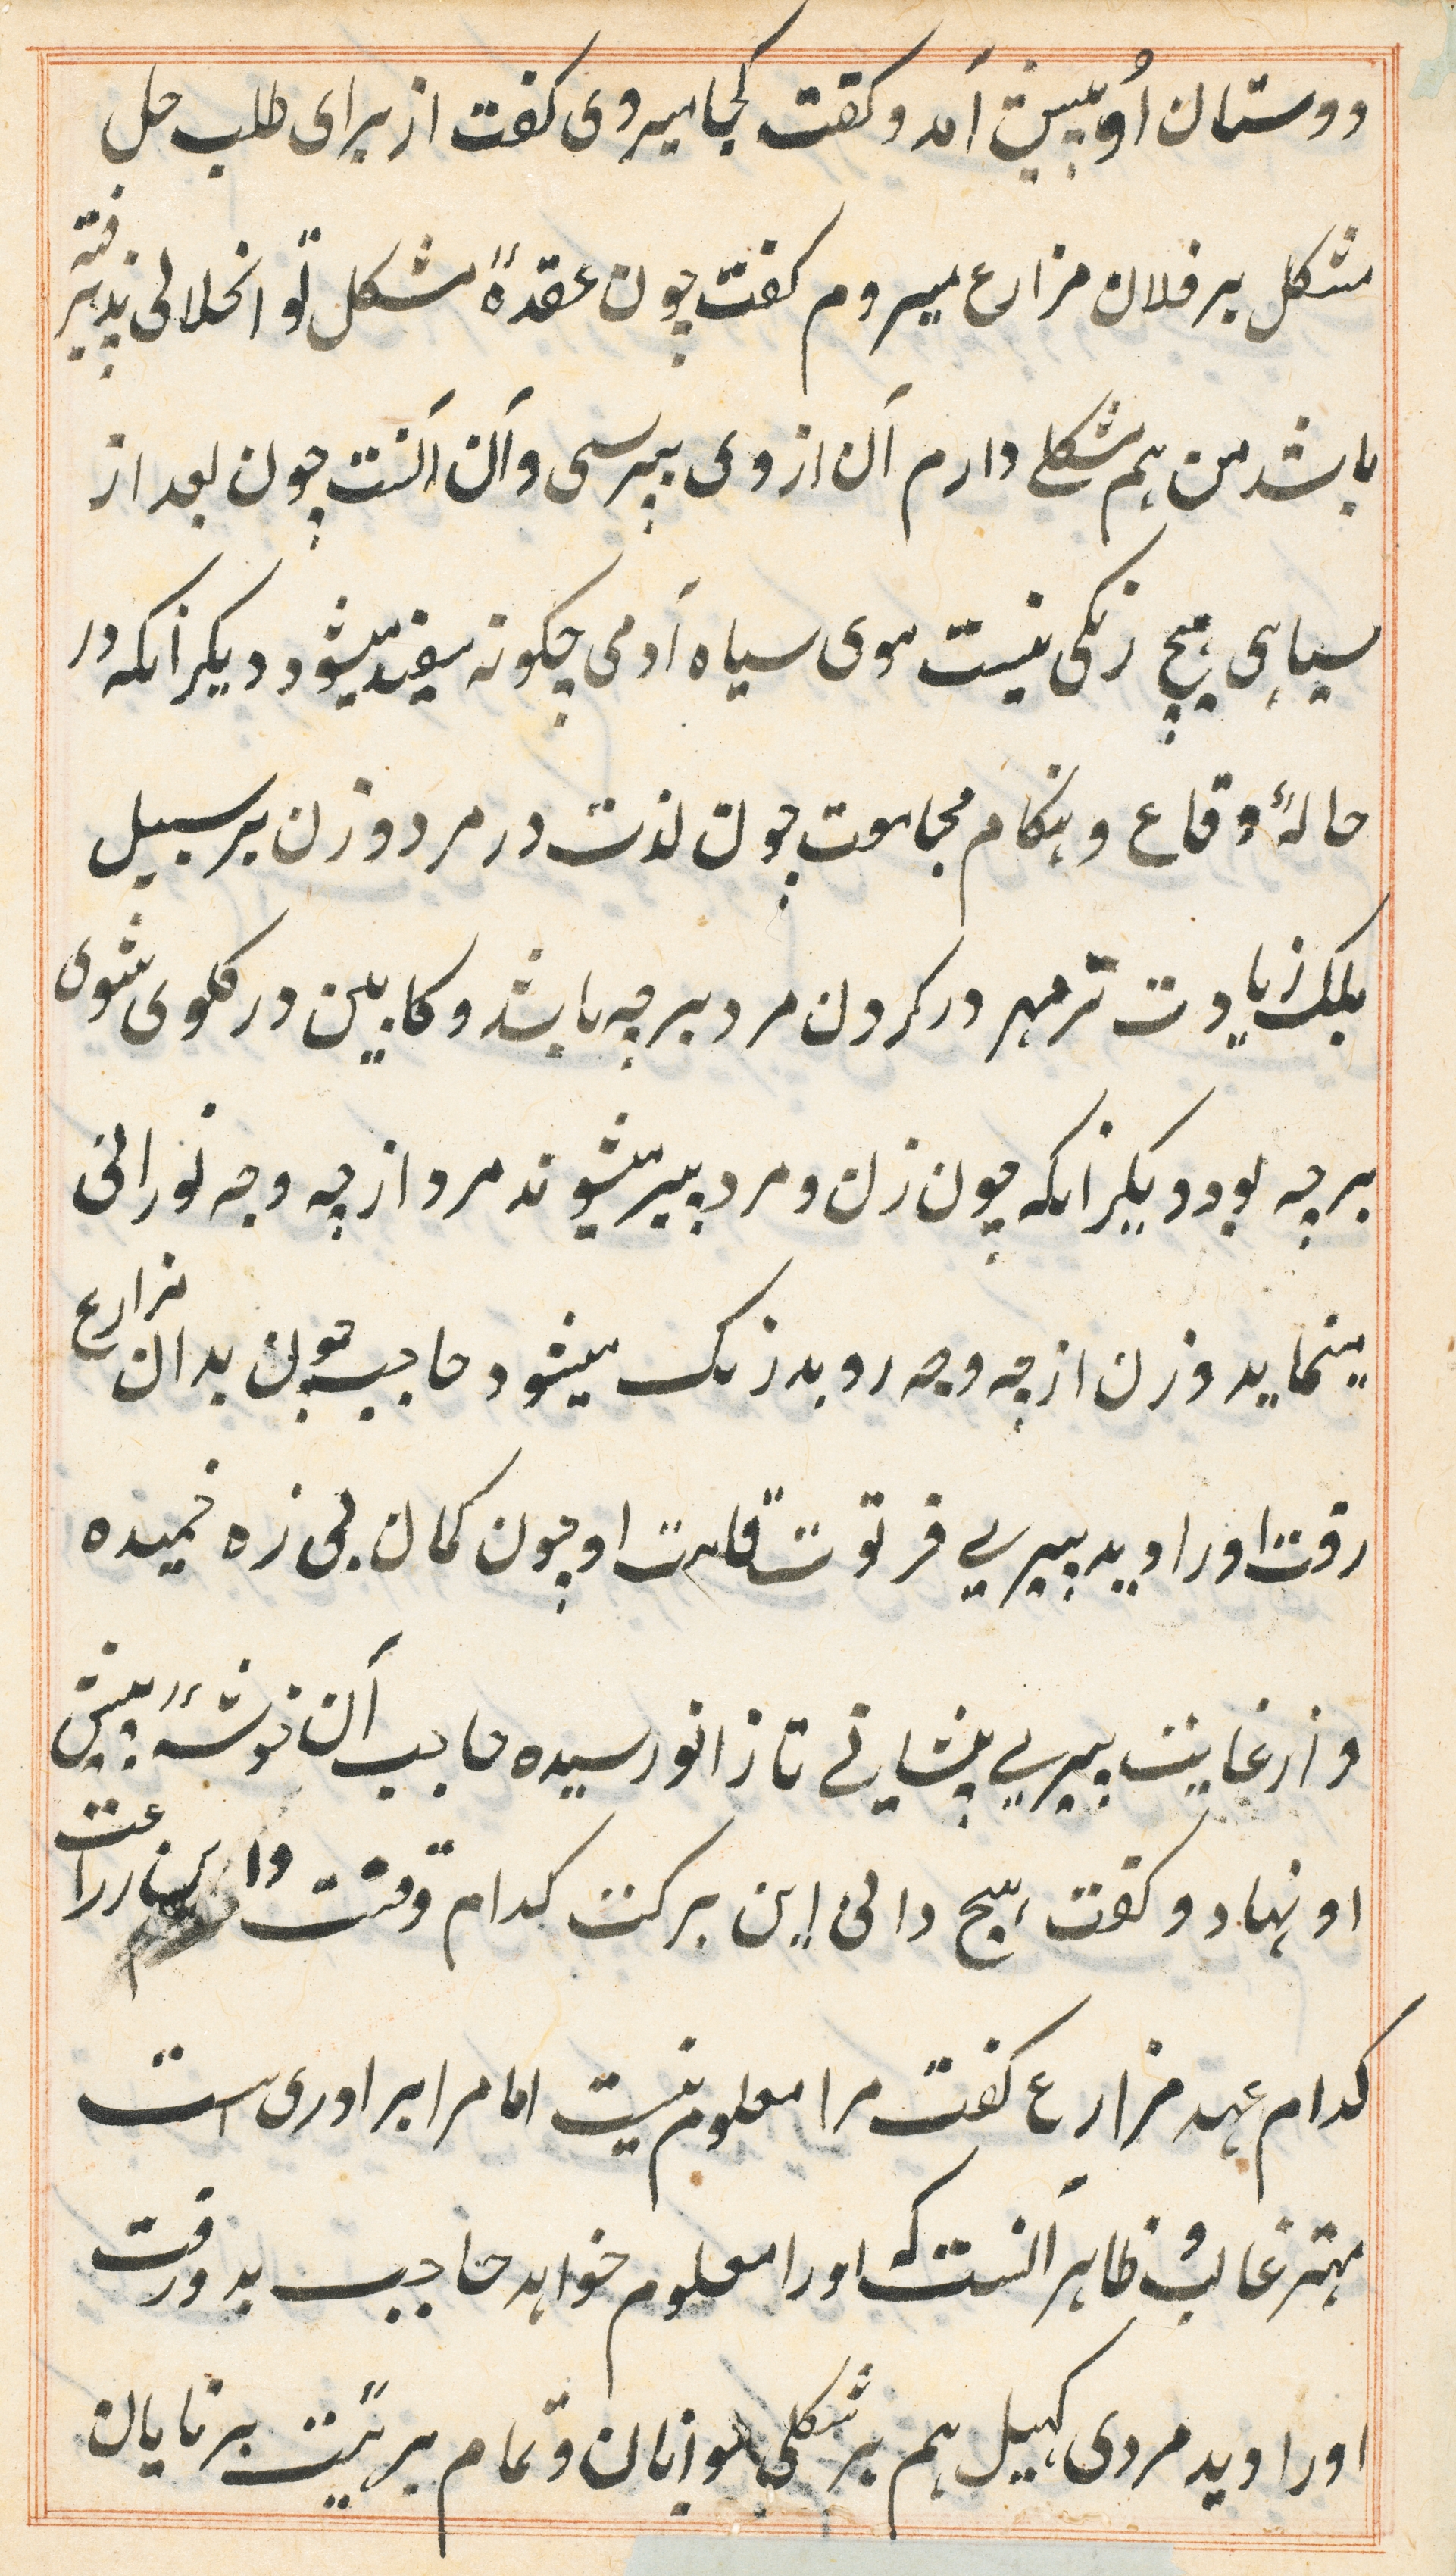 دوستان اُو پیش آمد و کفت کجا میروی کفت از برای طلب حل
مشکل بر فلان مزارع میروم کفت چون عقدهٔ مشکل تو انحلالی پذیرفته
باشد من هم مشکلے دارم آن از وی بپرسی و آن آنست چون بعد از
سیاهی هیچ رنکی نیست موی سیاه آدمی چکونه سفید میشود دیکر انکه در
حالهٔ وقاع و هنکام مجامعت چون لذت در مرد و زن بر سبیل
بلکه زیادت تر مهر در کردن مرد بر چه باشد و کابین در کلوی شوی
بر چه بود دیکر انکه چون زن و مرد پیر میشوند مرد از چه وجه نورانی
مینماید و زن از چه وجه رو بد رنک میشود حاجب چون بدان مزارع
رفت او را دید پیریے فرتوت قامت او چون کمان بی زه خمیده
و از غایت پیریے پیشانے تا زانو رسیده حاجب آن خوشهٔ پیش
او نهاد و کفت هیچ دانی این برکت کدام وقتت و این زراعت
کدام عهد مزارع کفت مرا معلوم نیست اما مرا برادری است
مهتر غالب و ظاهر آنست که او را معلوم خواهد حاجب بدو رفت
او را دید مردی کهیل هم بر شکلی جوانان و تمام بر هئیت برنایان